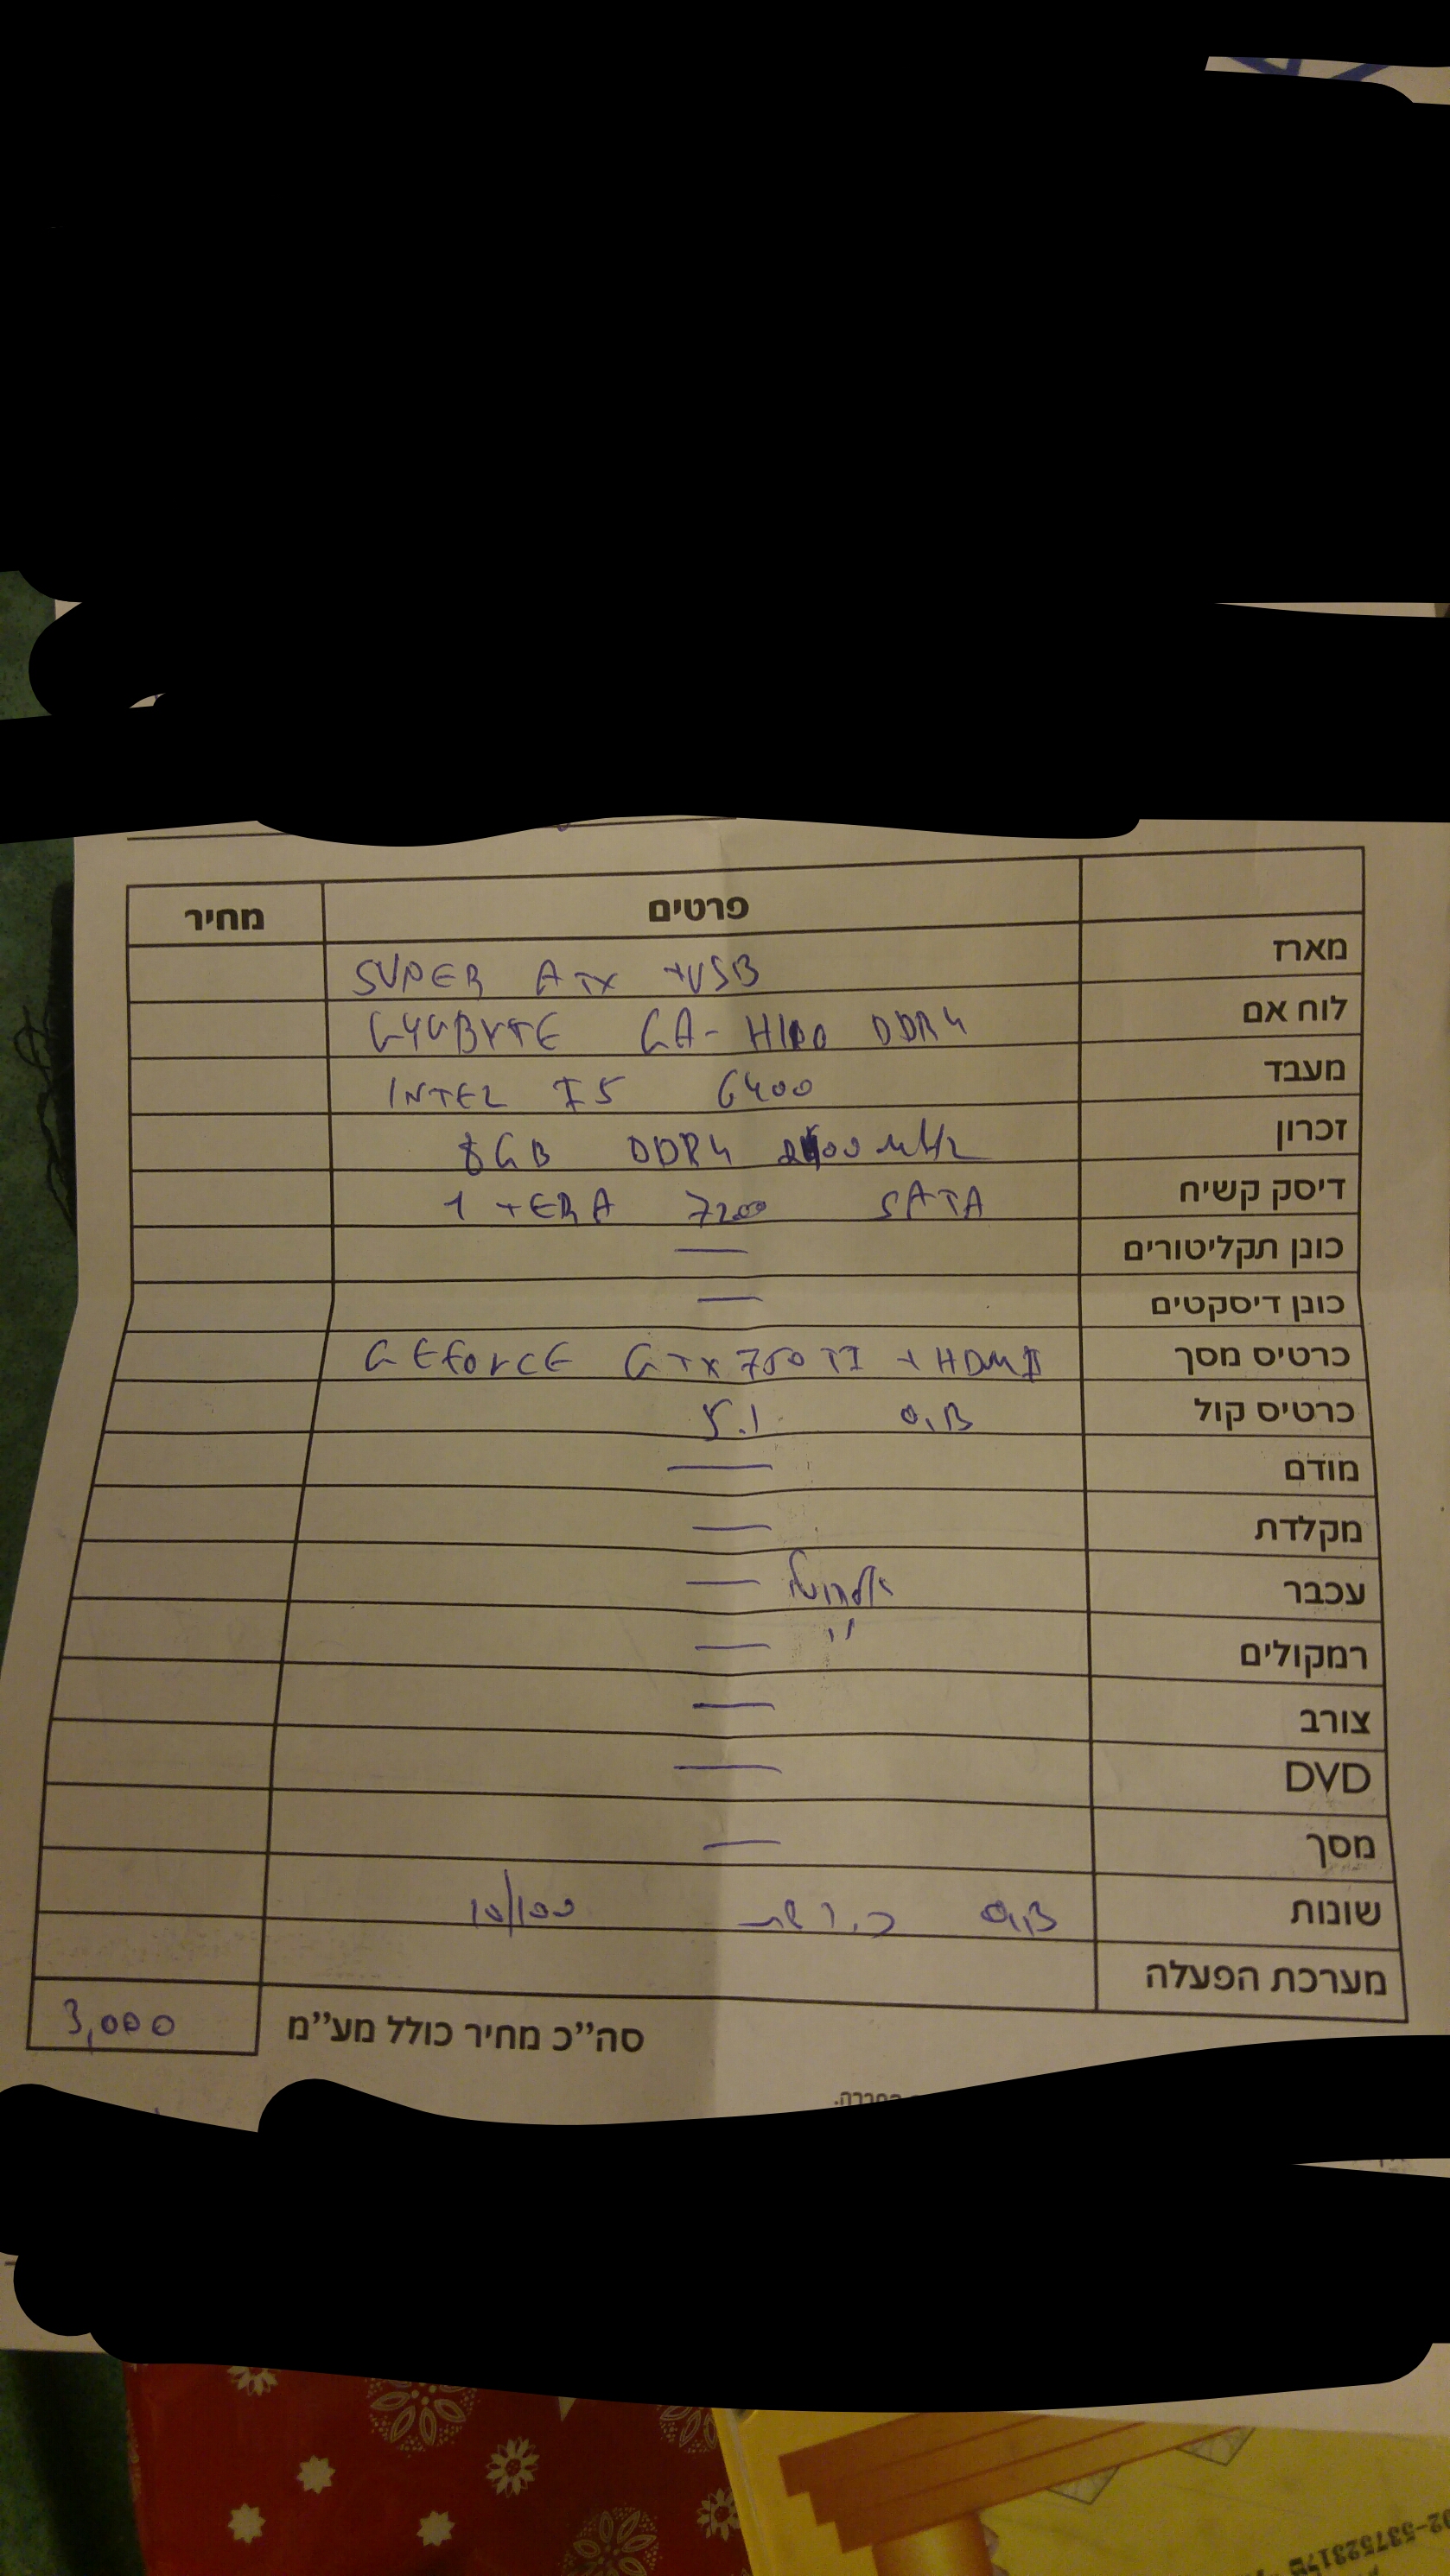 פרטים מחיר
מארז SUPER ATX +USB
לוח אם GYGBYTE GA-H110 DDR4
מעבד INTEL I5 6400
זכרון 8GB DDR4 MHz
דיסק קשיח 1 TERA 7200 SATA
כונן תקליטורים —
כונן דיסקטים —
כרטיס מסך GEforcE GTX750TI + HDMI
כרטיס קול O.B 5.1
מודם —
מקלדת —
עכבר —
רמקולים — "
צורב —
DVD —
מסך —
שונות O.B כ. רשת 10/100
מערכת הפעלה
סה"כ מחיר כולל מע"מ 3,000